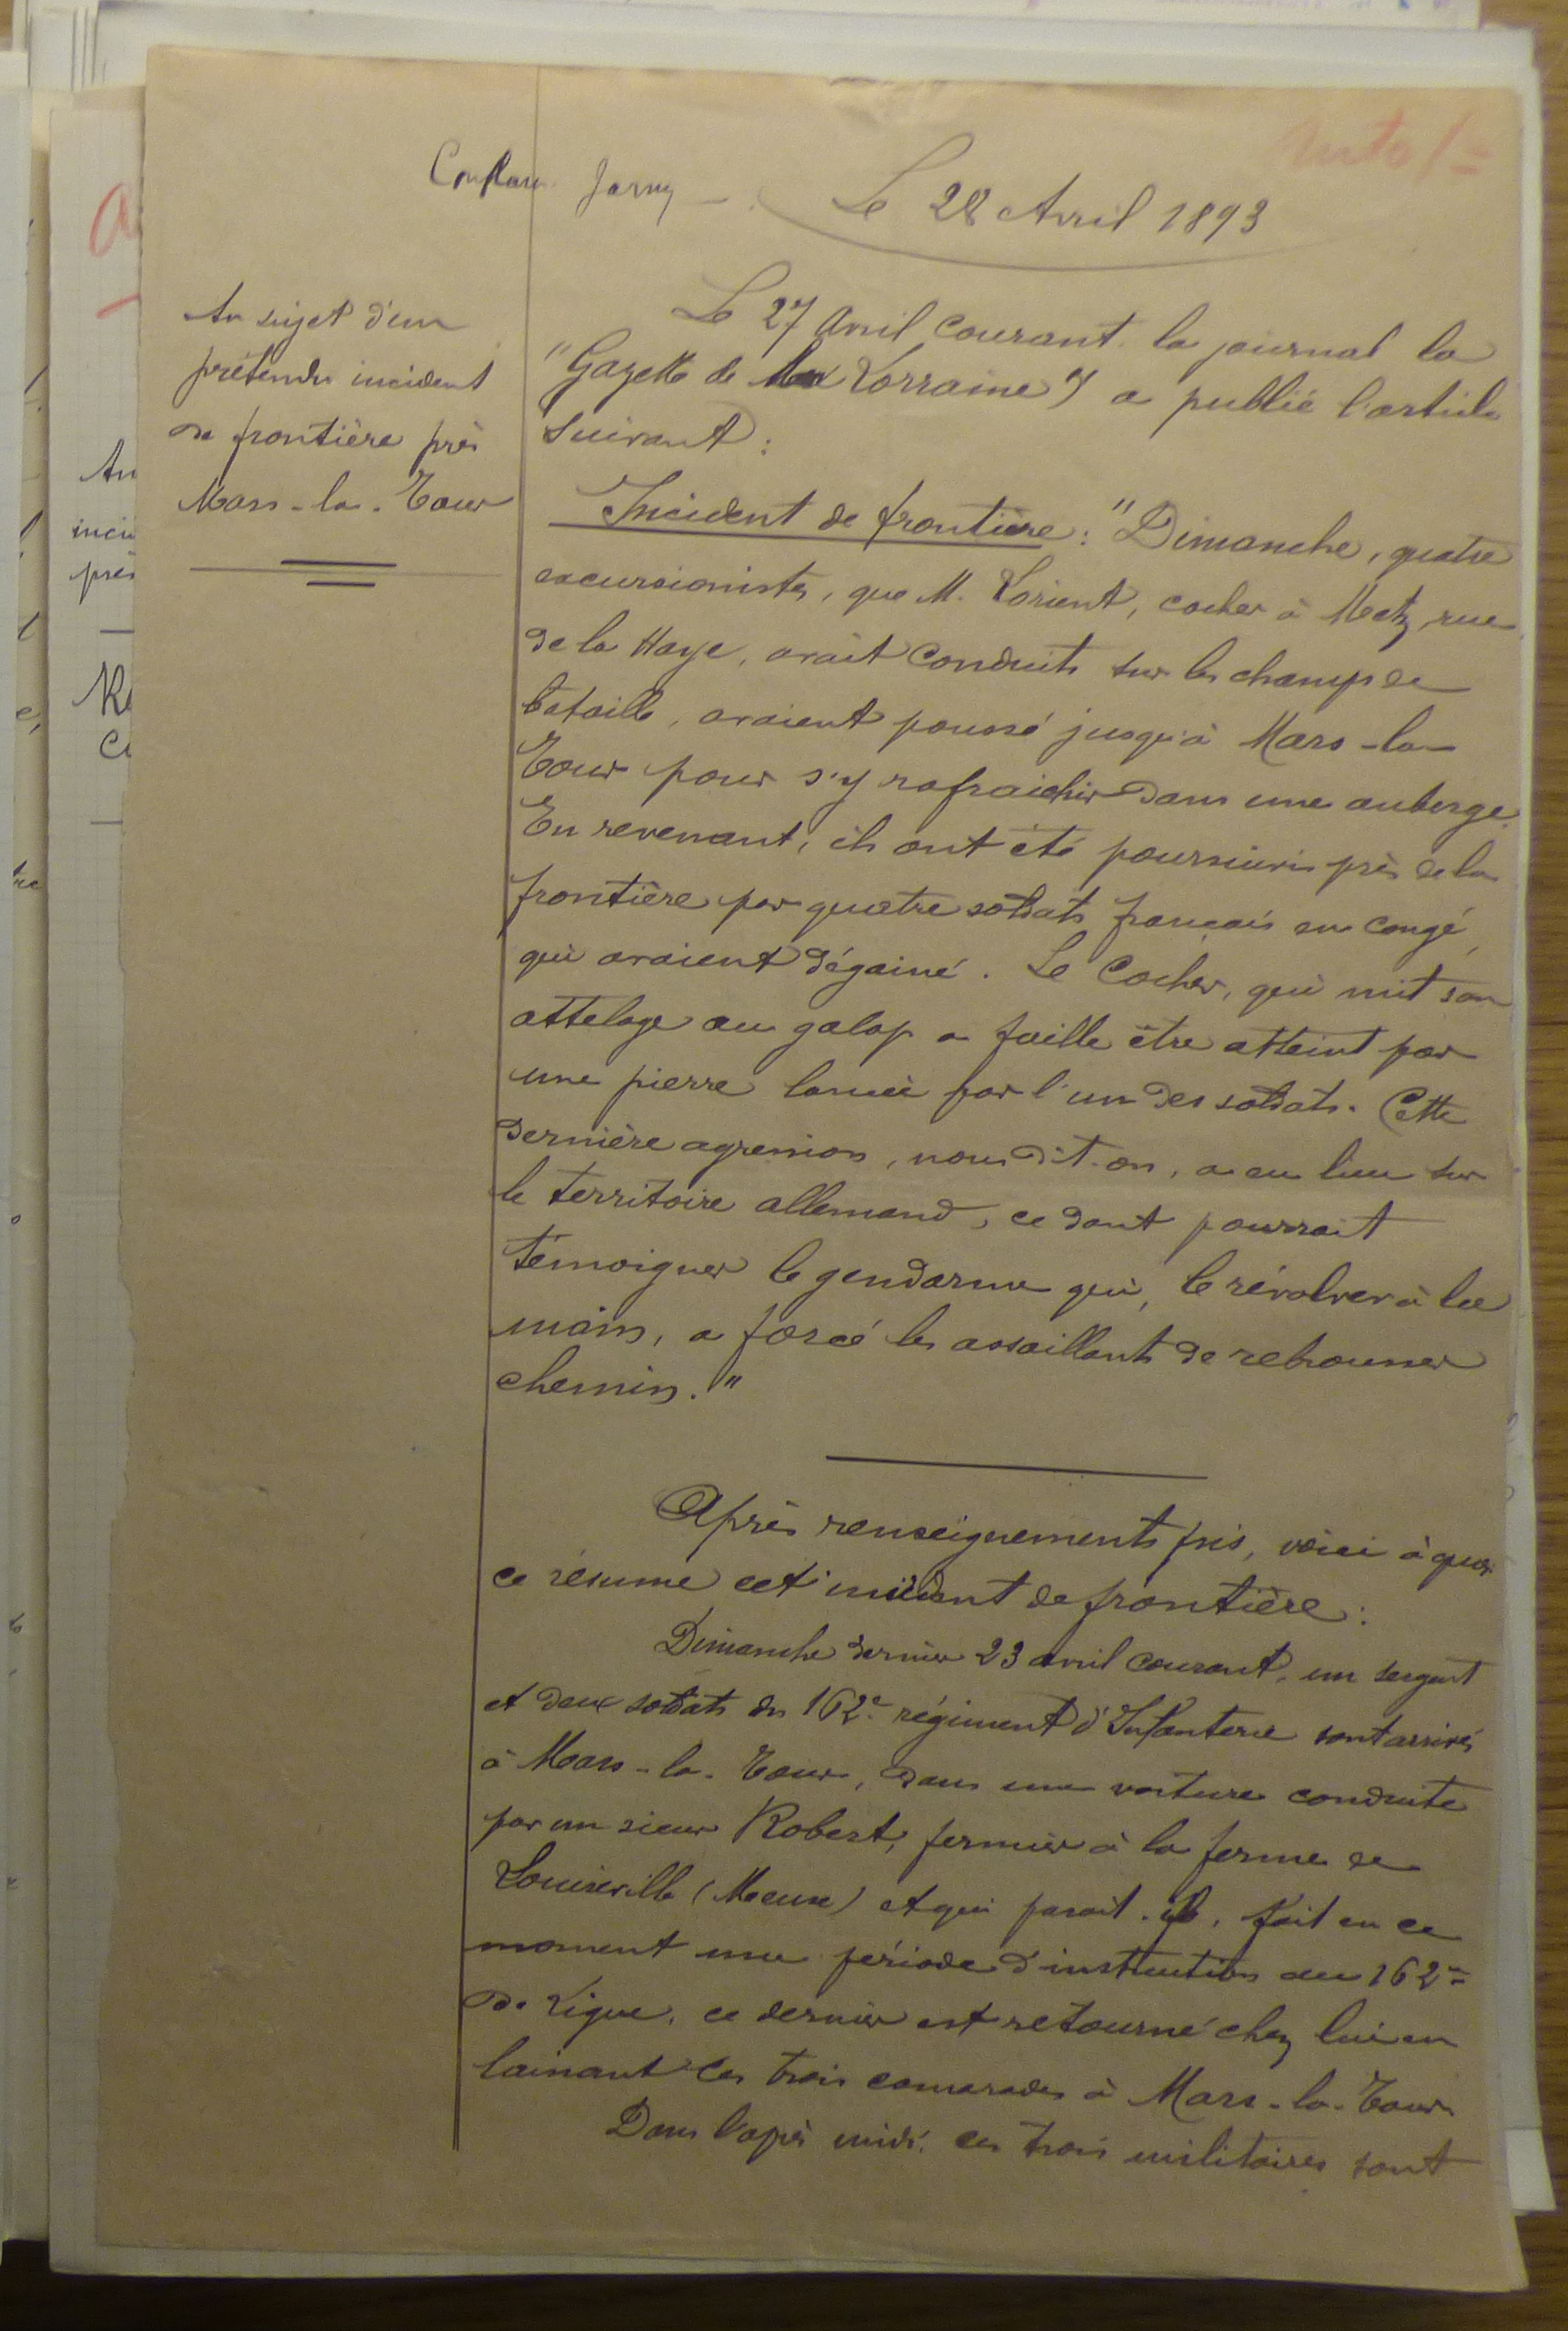 Conflans Jarny -
Le 28 Avril 1893
Au sujet d'un
prétendu incident
de frontière près
Mars-la-Tour
Le 27 Avril courant le journal la
"Gazette de Lorraine" a publié l'article
suivant :
Incident de frontière : "Dimanche, quatre
excursionistes, que M. Lorient, cocher à Metz, rue
de la Haye, avait conduits sur les champs de
bataille, avaient poussé jusqu'à Mars-la-
Tour pour s'y rafraichir dans une auberge.
En revenant, ils ont été poursuivis près de la
frontière par quatre soldats français en congé,
qui avaient dégainé. Le Cocher, qui mit son
attelage au galop a faille être atteint par
une pierre lancée par l'un des soldats. Cette
dernière agression, nous dit-on, a eu lieu sur
le territoire allemand, ce dont pourrait
témoigner le gendarme qui, le révolver à la
main, a forcé les assaillants de rebrousser
chemin."
Après renseignements pris, voici à quoi
ce résume cet incident de frontière :
Dimanche dernier 23 avril courant, un sergent
et deux soldats du 162e régiment d'Infanterie sont arrivés
à Mars-la-Tour, dans une voiture conduite
par un sieur Robert, fermier à la ferme de
Louiseville (Meuse) et qui parait-il, fait en ce
moment une période d'instruction au 162e
de Ligne, ce dernier est retourné chez lui en
laissant ces trois camarades à Mars-la-Tour
Dans l'après midi, ces trois militaires sont